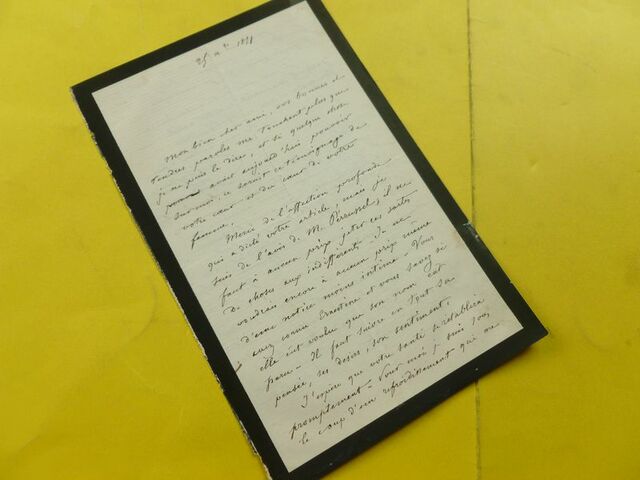 25 9bre 1871
Mon bien cher ami, vos bonnes et
tendres paroles me touchent plus que
je ne puis le dire, et si quelque chose
avait aujourd'hui pouvoir
sur moi, ce serait ce témoignage de
votre cœur et du cœur de votre
femme.
Merci, de l'affection profonde
qui a dicté votre article, mais je
suis de l'avis de M. Perrussel, il ne
faut à aucun prix jeter ces sortes
de choses aux indifférents. Je ne
voudrais encore à aucun prix même
d'une notice moins intime. Vous
avez connu Ernestine et vous savez si
elle eût voulu que son nom eût
paru – Il faut suivre en tout sa
pensée, ses désirs, son sentiment.
J'espère que votre santé se rétablira
promptement – Pour moi je suis sous
le coup d'un refroidissement qui me